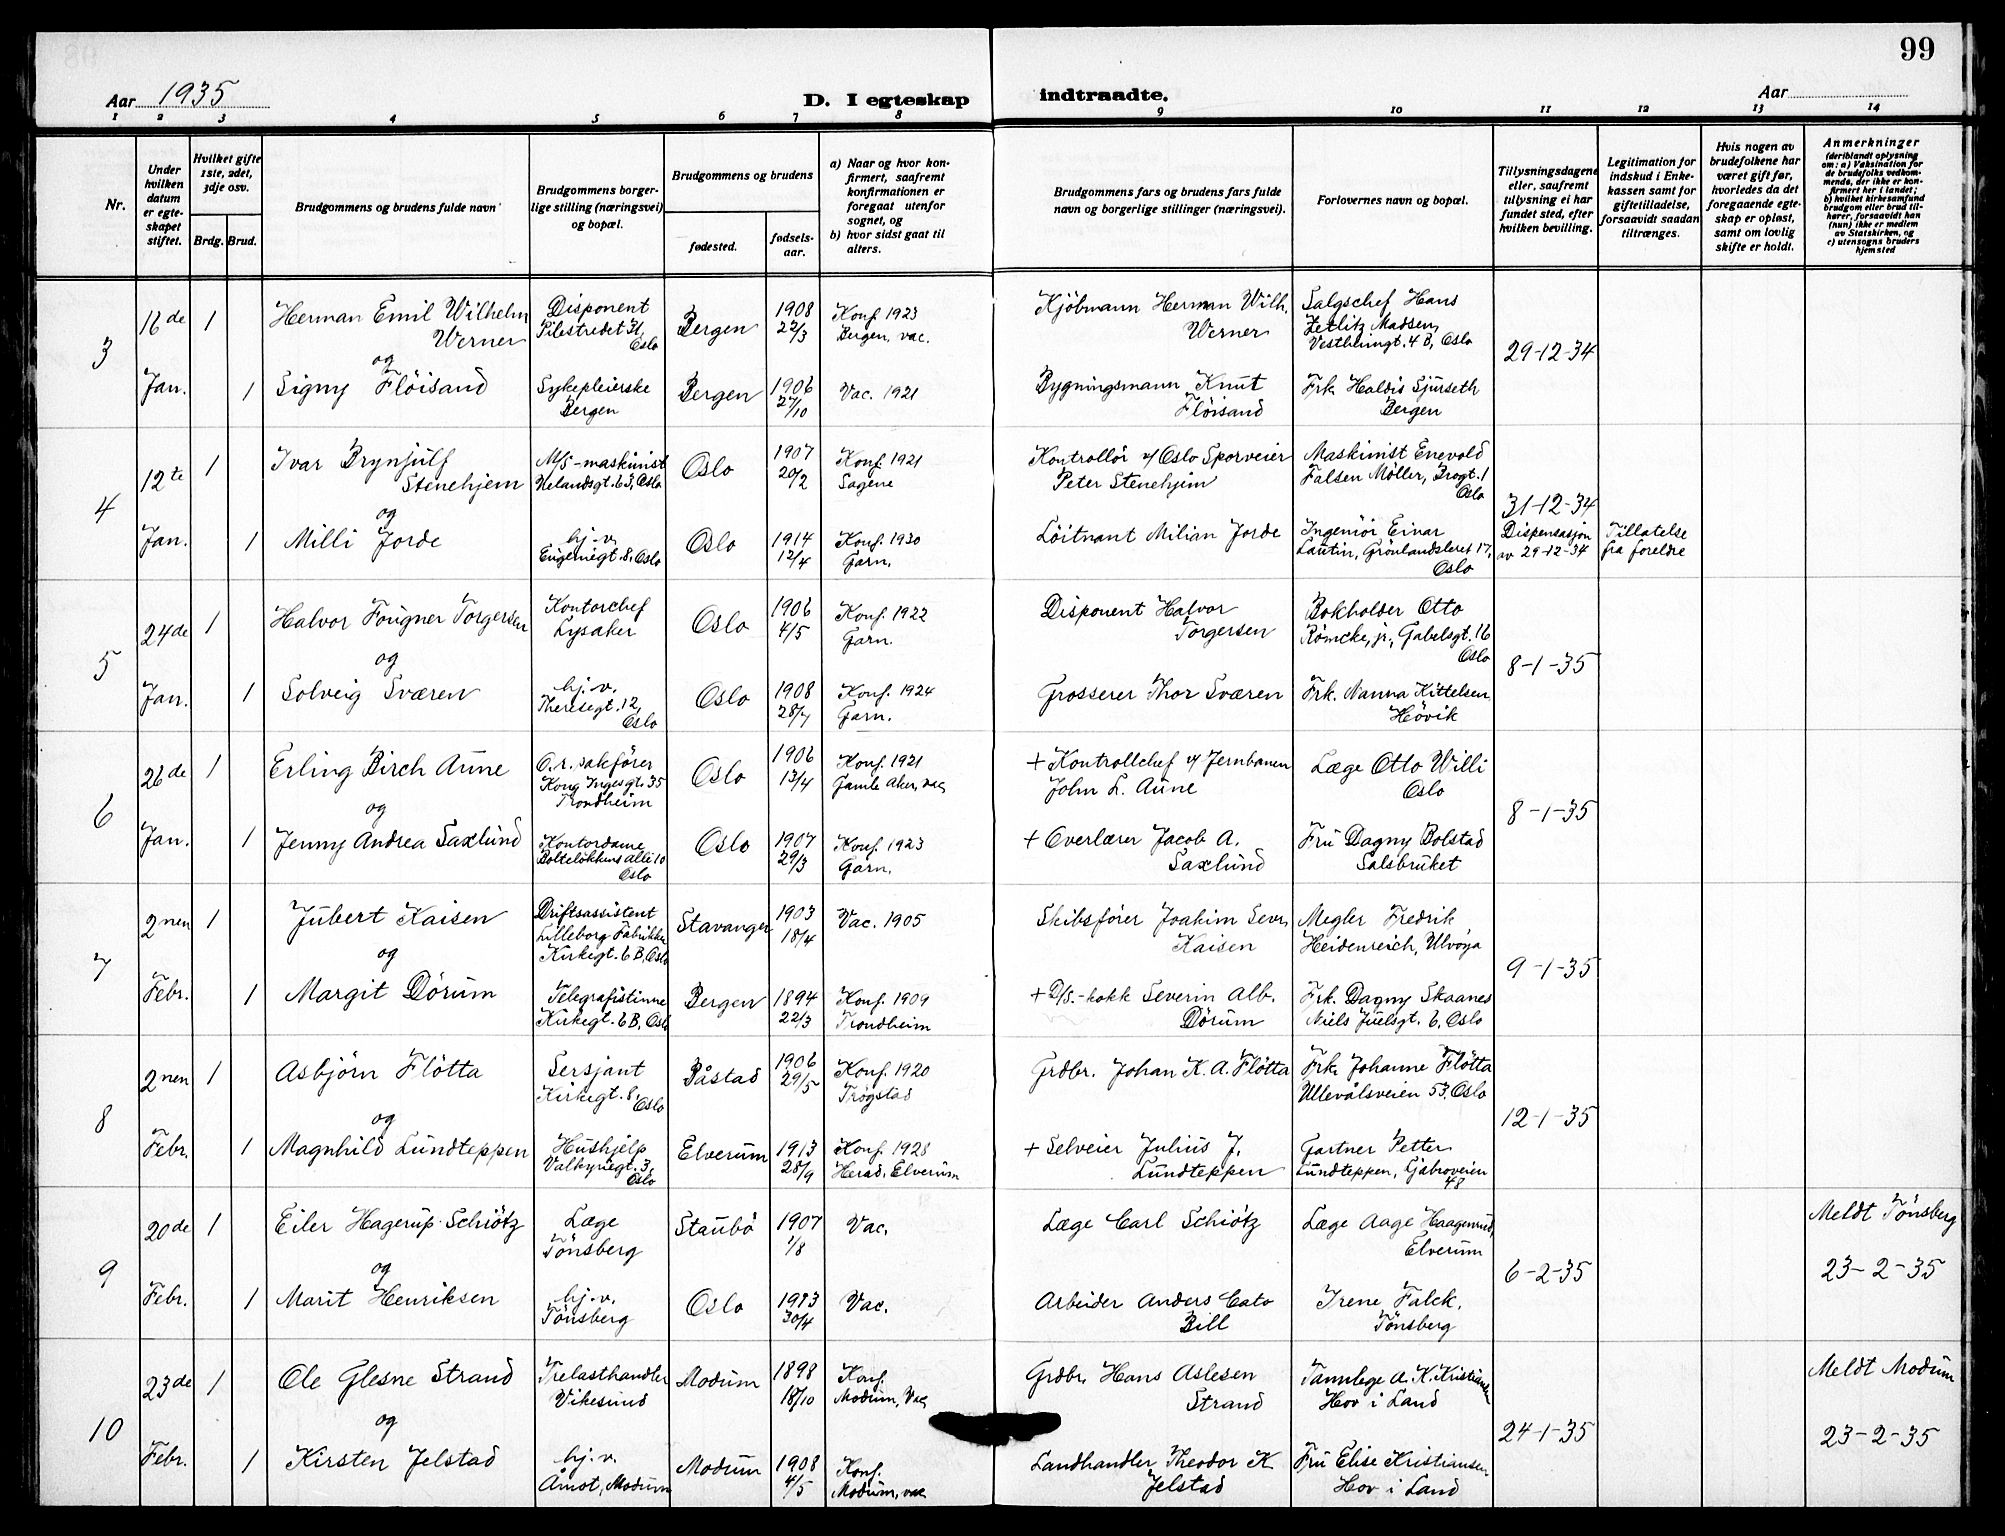 99
Aar 1935
D. I egteskap
indtraadte.
Aar
1 2 3 4 5 6 7 8 9 10 11 12 13 14
Nr.
Under hvilken datum er egte-skapet stiftet.
Hvilket gifte 1ste, 2det, 3dje osv.
Brdg. Brud.
Brudgommens og brudens fulde navn
Brudgommens borger-lige stilling (næringsvei) og bopæl.
Brudgommens og brudens
fødested.
fødsels-aar.
a) Naar og hvor kon-firmert, saafremt konfirmationen er foregaat utenfor sognet, og
b) hvor sidst gaat til alters.
Brudgommens fars og brudens fars fulde navn og borgerlige stillinger (næringsvei).
Forlovernes navn og bopæl.
Tillysningsdagene eller, saafremt tillysning ei har fundet sted, efter hvilken bevilling.
Legitimation for indskud i Enke-kassen samt for giftetilladelse, forsaavidt saadan tiltrænges.
Hvis nogen av brudefolkene har været gift før, hvorledes da det foregaaende egte-skap er opløst, samt om lovlig skifte er holdt.
Anmerkninger
(deriblandt oplysning om: a) Vaksination for de brudefolks vedkom-mende, der ikke er kon-firmert her i landet; b) hvilket kirkesamfund brudgom eller brud til-hører, forsaavidt han (hun) ikke er medlem av Statskirken, og c) utensogns bruders hjemsted
3
16de 1 Herman Emil Wilhelm Werner
Disponent Pilestredet 31, Oslo
Bergen 1908 22/3
Konf. 1923 Bergen, vac.
Kjöbmann Herman Wilh. Werner
Salgschef Hans Zetlitz Madsen, Vestheimgt. 4 B, Oslo
29-12-34
og
Jan. 1 Signy Flöisand
Sykepleierske Bergen
Bergen 1906 27/10
Vac. 1921
Bygningsmann Knut Flöisand
Frk. Haldis Sjurseth Bergen
4
12te 1 Ivar Brynjulf Stenehjem
M/S-maskinist Uelandsgt. 63, Oslo
Oslo 1907 20/2
Konf. 1921 Sagene
Kontrollör v/ Oslo Sporveier Peter Stenehjem
Maskinist Enevold Falsen Möller, Brogt. 1 Oslo
31-12-34
og
Jan. 1 Milli Jorde
hj.v. Eugeniegt. 8, Oslo
Oslo 1914 12/4
Konf. 1930 Garn.
Löitnant Milian Jorde
Ingeniör Einar Lautin, Grönlandsleret 17, Oslo
Dispensasjon av 29-12-34
Tillatelse fra foreldre
5
24de 1 Halvor Fougner Torgersen
Kontorchef Lysaker
Oslo 1906 4/5
Konf. 1922 Garn.
Disponent Halvor Torgersen
Bokholder Otto Römcke, jr., Gabelsgt. 16 Oslo
8-1-35
og
Jan. 1 Solveig Sværen
hj.v. Theresegt. 12, Oslo
Oslo 1908 28/7
Konf. 1924 Garn.
Grosserer Thor Sværen
Frk. Nanna Kittelsen Hövik
6
26de 1 Erling Birch Aune
O.r.sakförer Kong Ingesgt. 35 Trondheim
Oslo 1906 13/4
Konf. 1921 Gamle Aker, vac
+ Kontrollchef v/ Jernbanen John L. Aune
Læge Otto Willi Oslo
8-1-35
og
Jan. 1 Jenny Andrea Saxlund
Kontordame Bolteløkkens alle 10 Oslo
Oslo 1907 29/3
Konf. 1923 Garn.
+ Overlærer Jacob A. Saxlund
Fru Dagny Bolstad Salsbruket
7
2nen 1 Jubert Kaisen
Driftsassistent Lilleborg Fabrikker Kirkegt. 6 B, Oslo
Stavanger 1903 18/4
Vac. 1905
Skibsförer Joakim Sevr. Kaisen
Megler Fredrik Heidenreich, Ulvöya
9-1-35
og
Febr. 1 Margit Dörum
Telegrafistinne Kirkegt. 6 B, Oslo
Bergen 1894 22/3
Konf. 1909 Trondheim
+ D/S.-kokk Severin Alb. Dörum
Frk. Dagny Skaanes Niels Juelsgt. 6, Oslo
8
2nen 1 Asbjörn Flötta
Sersjant Kirkegt. 8, Oslo
Båstad 1906 29/5
Konf. 1920 Trögstad
Grdbr. Johan K. A. Flötta
Frk. Johanne Flötta Ullevålsveien 53, Oslo
12-1-35
og
Febr. 1 Magnhild Lundteppen
Hushjelp Valkyriegt. 3, Oslo
Elverum 1913 28/9
Konf. 1928 Herad, Elverum
+ Selveier Julius J. Lundteppen
Gartner Petter Lundteppen, Gjøbroveien 48
9
20de 1 Eiler Hagerup Schiötz
Læge Tönsberg
Staubö 1907 1/8
Vac.
Læge Carl Schiötz
Læge Aage Haagenrud, Elverum
6-2-35
Meldt Tönsberg 23-2-35
og
Febr. 1 Marit Henriksen
hj.v. Tönsberg
Oslo 1913 30/4
Vac.
Arbeider Anders Cato Bill
Irene Falck, Tönsberg
10
23de 1 Ole Glesne Strand
Trelasthandler Vikesund
Modum 1898 18/10
Konf. Modum, Vac
Grdbr. Hans Aslesen Strand
Tannlege A. K. Kristiansen Hov i Land
24-1-35
Meldt Modum 23-2-35
og
Febr. 1 Kirsten Jelstad
hj.v. Åmot, Modum
Modum 1908 4/5
Konf. Modum, vac
Landhandler Theodor K Jelstad
Fru Elise Kristiansen Hov i Land